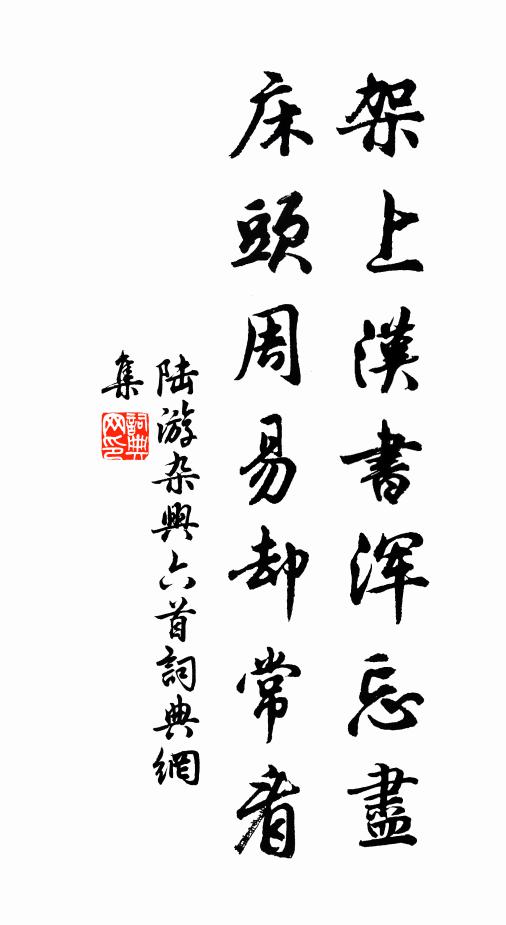 架上漢書浑忘盡
床頭周易却常看
陆游杂興六首詞典網
集
詞典
网印